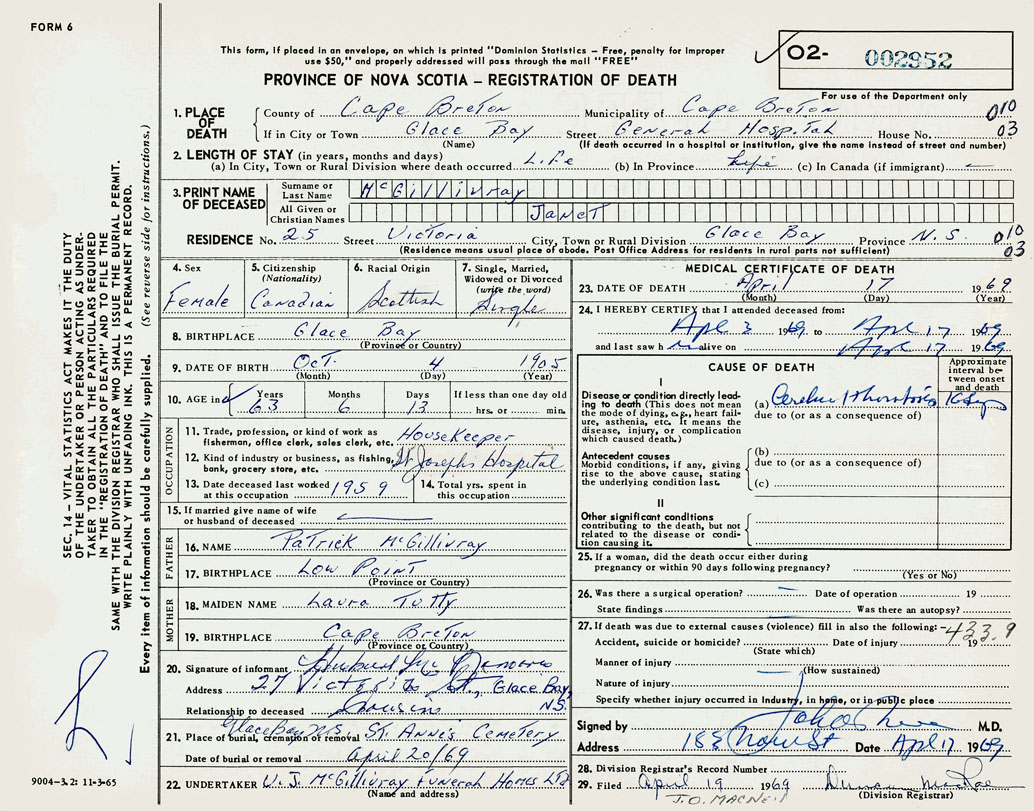 FORM 6
This form, if placed in an envelope, on which is printed "Dominion Statistics – Free, penalty for improper
use $50," and properly addressed will pass through the mail "FREE"
O2- 002952
For use of the Department only
PROVINCE OF NOVA SCOTIA – REGISTRATION OF DEATH
1. PLACE OF DEATH
County of Cape Breton Municipality of Cape Breton 010
If in City or Town Glace Bay Street General Hospital House No. 03
(Name) (If death occurred in a hospital or institution, give the name instead of street and number)
2. LENGTH OF STAY (in years, months and days)
(a) In City, Town or Rural Division where death occurred Life (b) In Province Life (c) In Canada (if immigrant) –
3. PRINT NAME OF DECEASED
Surname or Last Name McGillivray
All Given or Christian Names Janet
RESIDENCE No. 25 Street Victoria City, Town or Rural Division Glace Bay Province N.S. 010
(Residence means usual place of abode. Post Office Address for residents in rural parts not sufficient) 03
4. Sex
Female
5. Citizenship
(Nationality)
Canadian
6. Racial Origin
Scottish
7. Single, Married,
Widowed or Divorced
(write the word)
Single
8. BIRTHPLACE Glace Bay
(Province or Country)
9. DATE OF BIRTH Oct 4 1905
(Month) (Day) (Year)
10. AGE in
Years Months Days If less than one day old
63 6 13 hrs. or min.
OCCUPATION
11. Trade, profession, or kind of work as Housekeeper
fisherman, office clerk, sales clerk, etc.
12. Kind of industry or business, as fishing, St Josephs Hospital
bank, grocery store, etc.
13. Date deceased last worked at this occupation 1959
14. Total yrs. spent in this occupation
15. If married give name of wife
or husband of deceased
FATHER
16. NAME Patrick McGillivray
17. BIRTHPLACE Low Point
(Province or Country)
MOTHER
18. MAIDEN NAME Laura Tutty
19. BIRTHPLACE Cape Breton
(Province or Country)
20. Signature of informant
Address 27 Victoria St., Glace Bay, N.S.
Relationship to deceased Cousin
21. Place of burial, cremation or removal Glace Bay N.S. St. Anne's Cemetery
Date of burial or removal April 20/69
22. UNDERTAKER V. J. McGillivray Funeral Homes Ltd
(Name and address)
MEDICAL CERTIFICATE OF DEATH
23. DATE OF DEATH April 17 1969
(Month) (Day) (Year)
24. I HEREBY CERTIFY that I attended deceased from:
Apl 3 1969 to Apl 17 1969
and last saw h alive on Apl 17 1969
CAUSE OF DEATH
Approximate interval between onset and death
I
Disease or condition directly leading
to death (This does not mean
the mode of dying, e.g., heart failure,
asthenia, etc. It means the
disease, injury, or complication
which caused death.)
(a) Cerebral thrombosis
due to (or as a consequence of)
Antecedent causes
Morbid conditions, if any, giving
rise to the above cause, stating
the underlying condition last.
(b)
due to (or as a consequence of)
(c)
II
Other significant conditions
contributing to the death, but not
related to the disease or condition
causing it.
25. If a woman, did the death occur either during
pregnancy or within 90 days following pregnancy?
(Yes or No)
26. Was there a surgical operation? – Date of operation 19
State findings Was there an autopsy?
27. If death was due to external causes (violence) fill in also the following: 433.9
Accident, suicide or homicide? Date of injury 19
(State which)
Manner of injury
(How sustained)
Nature of injury
Specify whether injury occurred in Industry, in home, or in public place
Signed by M.D.
Address 185 St Date Apl 17 1969
28. Division Registrar's Record Number
29. Filed April 19 1969 Duncan MacRae
J.O. MACNEIL (Division Registrar)
SEC. 14 – VITAL STATISTICS ACT MAKES IT THE DUTY
OF THE UNDERTAKER OR PERSON ACTING AS UNDER-
TAKER TO OBTAIN ALL THE PARTICULARS REQUIRED
IN THE "REGISTRATION OF DEATH" AND TO FILE THE
SAME WITH THE DIVISION REGISTRAR WHO SHALL ISSUE THE BURIAL PERMIT.
WRITE PLAINLY WITH UNFADING INK. THIS IS A PERMANENT RECORD.
Every item of information should be carefully supplied. (See reverse side for instructions.)
9004-3.2: 11-3-65